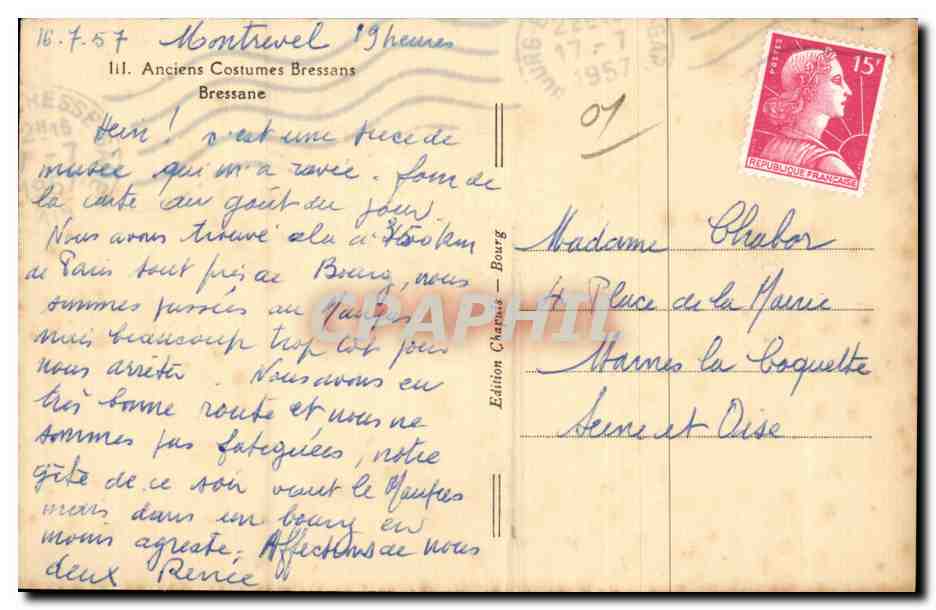 16-7-57 Montrevel 19 heures
111. Anciens Costumes Bressans
Bressane
Hein! c'est une pièce de
musée qui m'a ravie. fom de
la carte au goût du jour
Nous avons trouvé cela à 450 km
de Paris tout près de Bourg, nous
sommes passées au
mais beaucoup trop tôt pour
nous arrêter. Nous avons eu
très bonne route et nous ne
sommes pas fatiguées, notre
gîte de ce soir vaut le
mais dans un bourg en
moins agreste. Affections de nous
deux Renée
Edition Charuis — Bourg
01
BOURG-
17-7
1957
POSTES
15F
REPUBLIQUE FRANÇAISE
Madame Chabor
4 Place de la Mairie
Marnes la Coquette
Seine et Oise
CPAPHIL